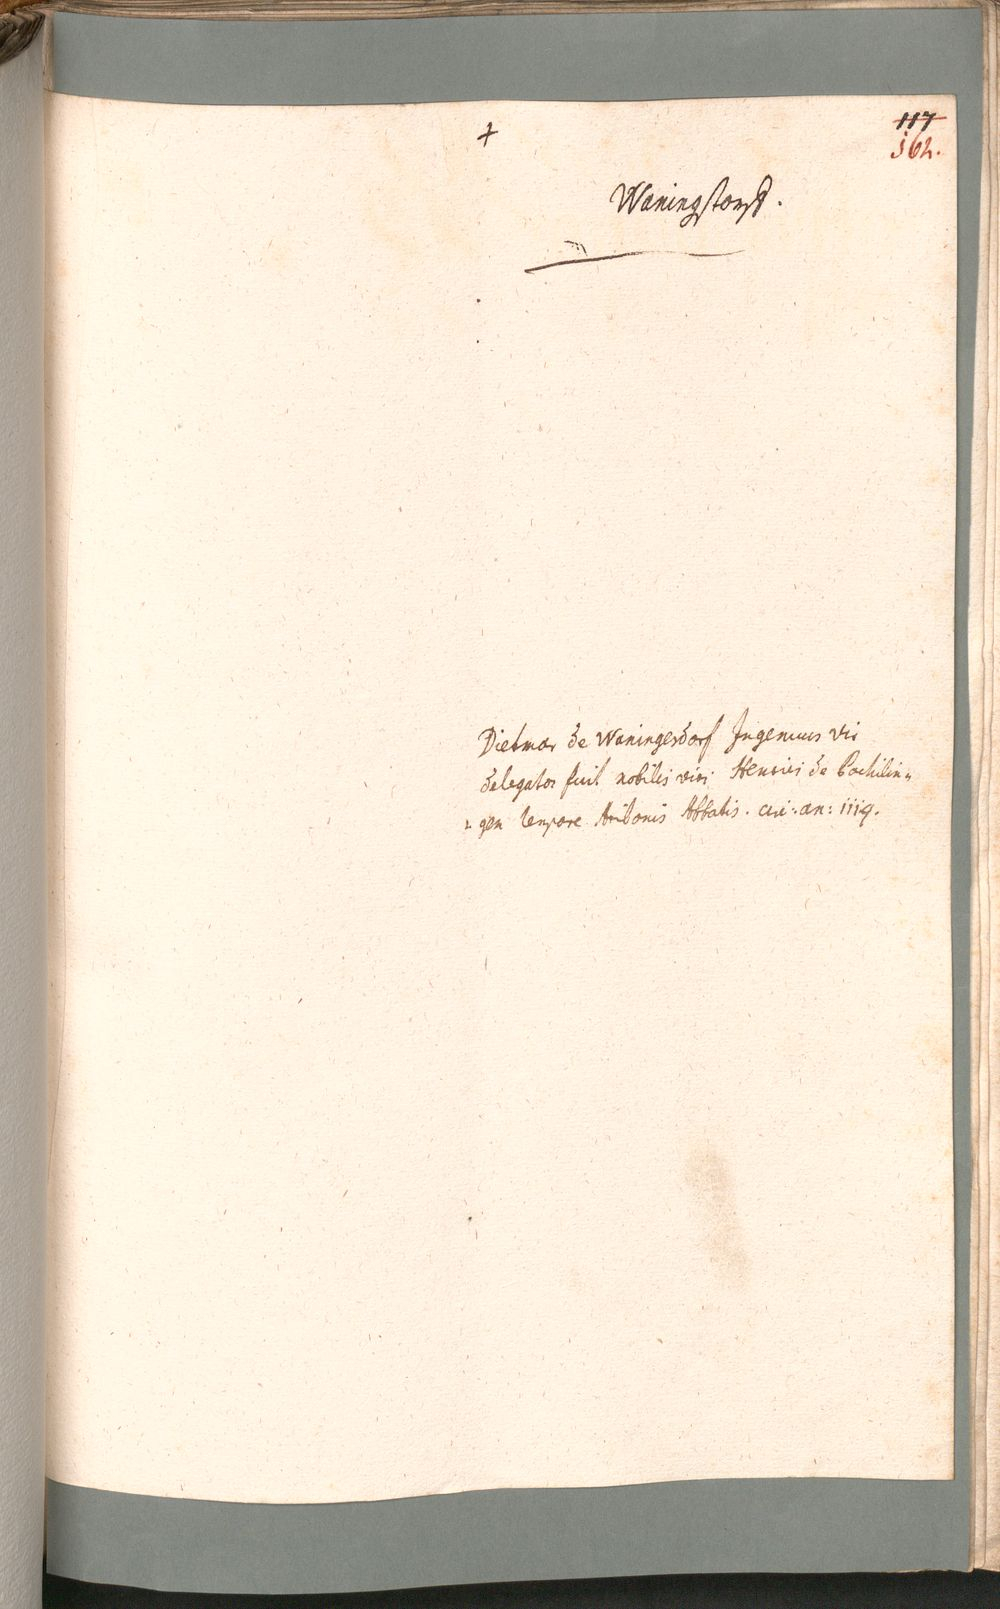 117
162.
Waningstorff.
Dietmar de Waningesdorf Ingenuus vir
delegator fuit nobilis viri Henrici de Cochilin=
=gen tempore Abbatis. an: 1119.